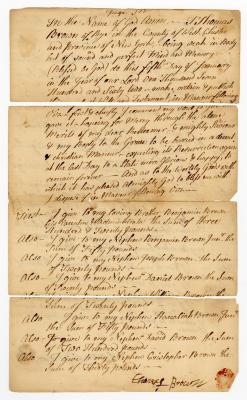 Page 307
In the Name of God Amen I Thomas
Brown of Rye in the County of West Chester
and Province of New York, being weak in Body
but of sound and perfect Mind and Memory
(Blessed be God) this fifth Day of January
in the Year of our Lord One Thousand Seven
Hundred and Sixty two make
give it hoping for Mercy through the alone
Merits of my dear Redeemer & mighty Saviour
and my Body to the Grave to be buried in a decent
Christian Manner expecting its Resurrection again
at the last Day to a State more glorious & happy &
remain forever And as to the Worldly Goods with
which it has pleased Almighty God to bless me with
I dispose of in Manner following Viz
First I give to my loving Brother Benjamin Brown
the Sum of three
Hundred & Twenty pounds
Also I give to my Nephew Benjamin Brown Junr the
Sum of Fifty pounds
Also I give to my Nephew Joseph Brown the Sum
of Twenty pounds
Also I give to my Nephew Daniel Brown the Sum
of Twenty pounds
Sum of Twenty pounds
Also I give to my Nephew Brown Junr
the Sum of Fifty pounds
Also I give to my Nephew David Brown the Sum
of Two Hundred pounds
Also I give to my Nephew Cristopher Brown the
Sum of Thirty pounds
Thomas Brown